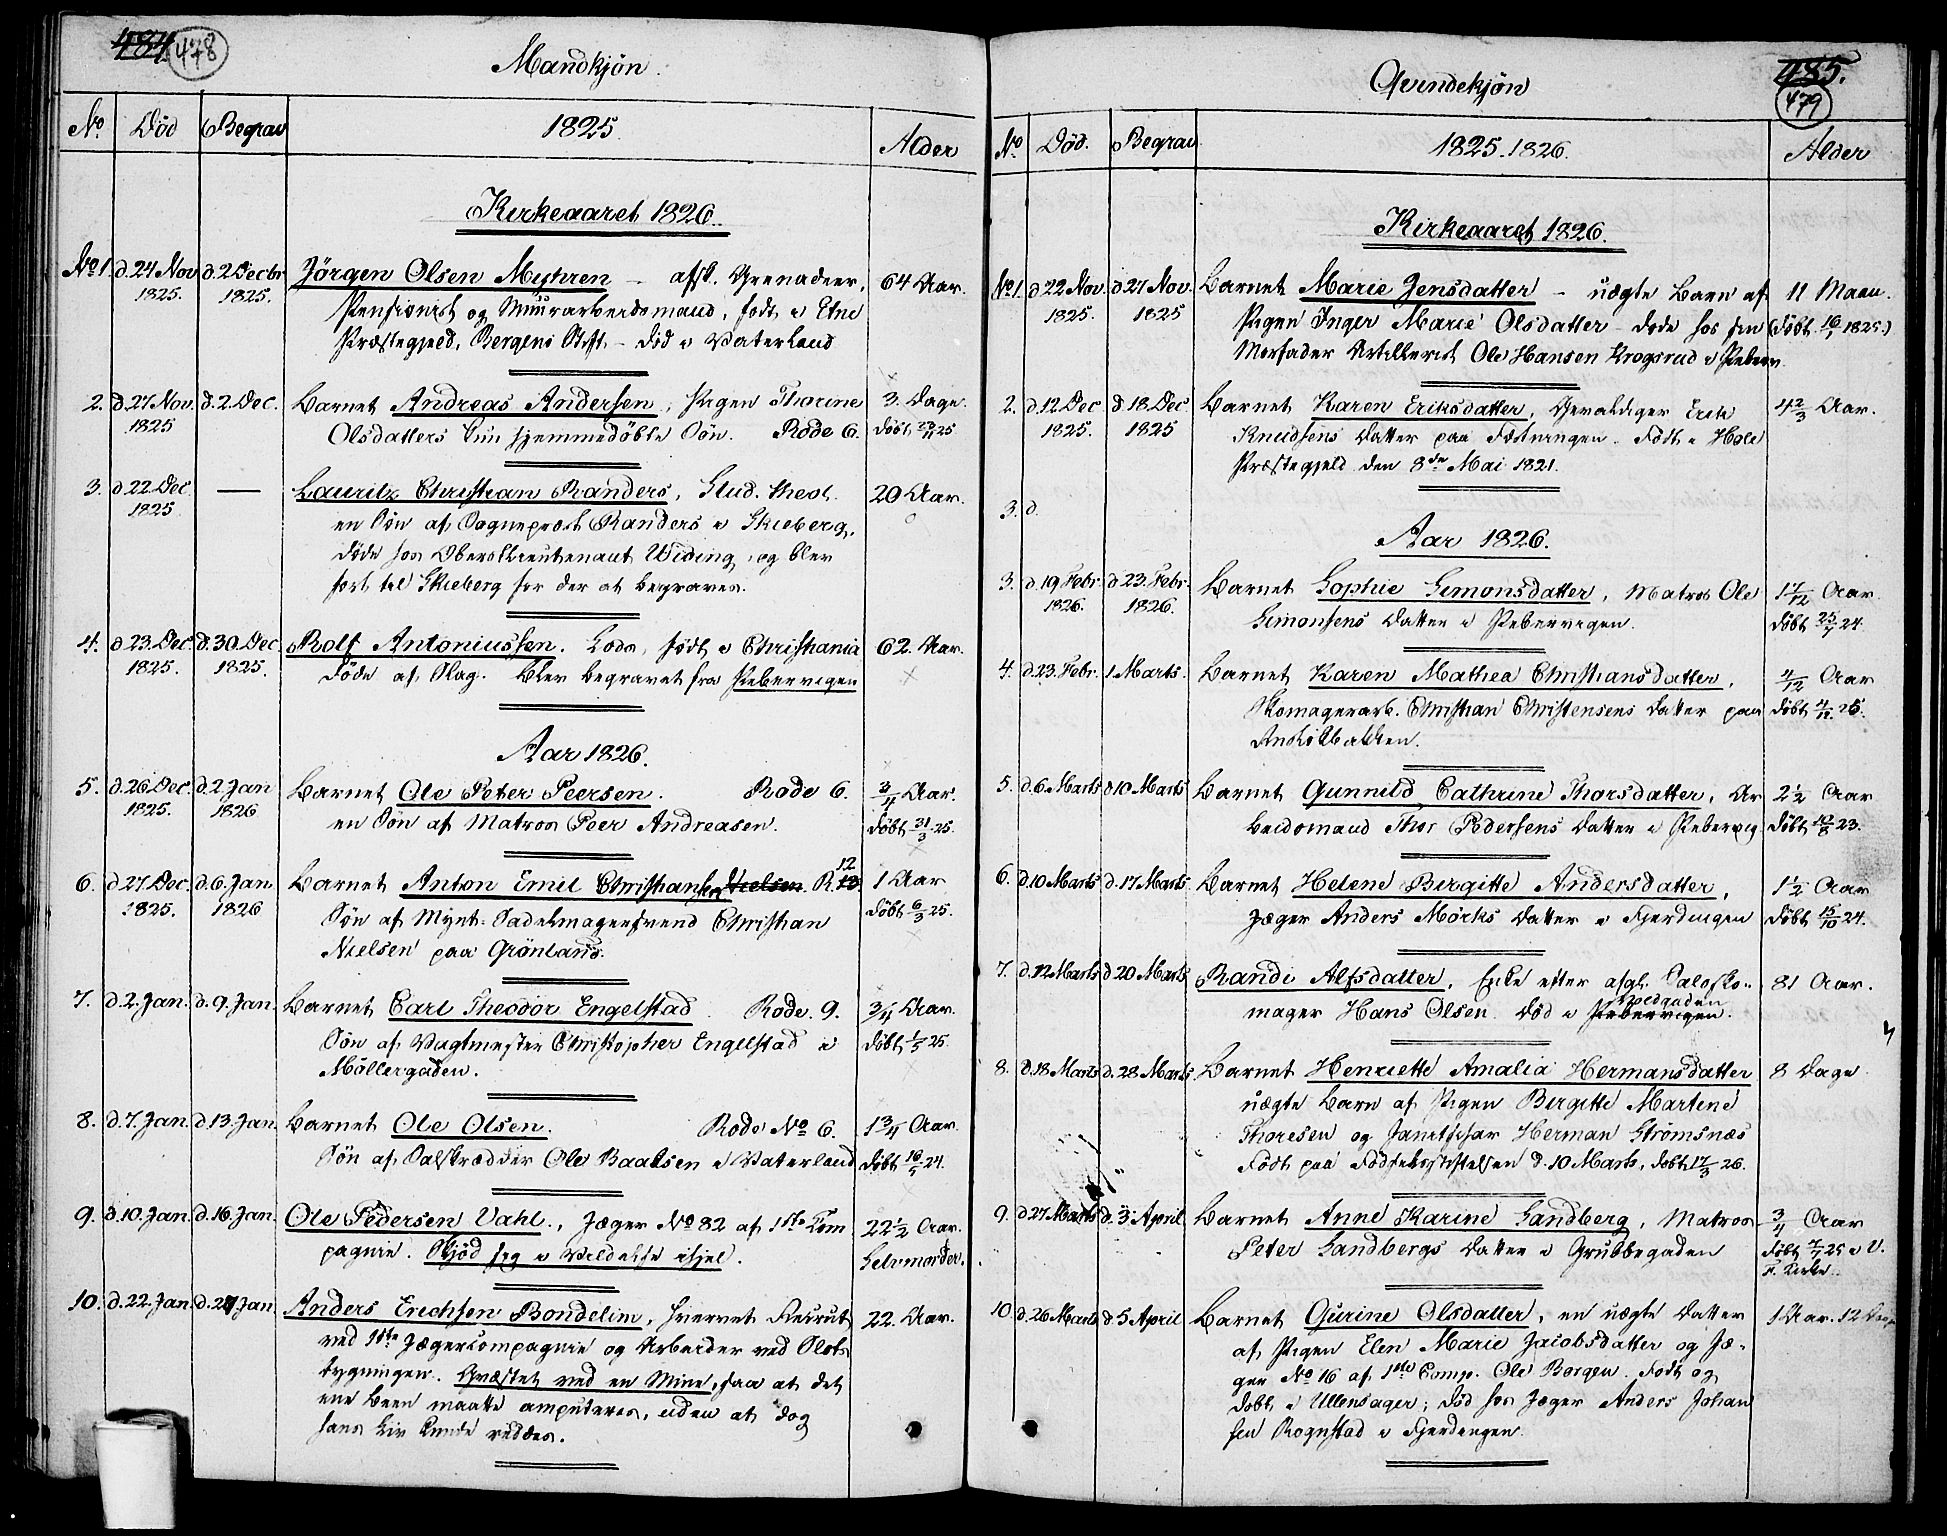 484. 478
Mandkjøn.
No. Død Begrav 1825. Alder
Kirkeaaret 1826.
No 1. d. 24 Nov 1825. d. 2 Decbr 1825. Jörgen Olsen Myhren – afsk. Grenadeer, 64 Aar.
Pensionist og Muurarbeidsmand, født i Etne
Præstegjeld, Bergens Stift. – død i Vaterland
2. d. 27 Nov. 1825 d. 2. Dec. Barnet Andreas Andersen, Pigen Thorine 3. Dage.
Olsdatters hjemmedöbte Søn. Rode 6. döbt 25
3. d. 22 Dec 1825 — Lauritz Christian Randers, Stud. theol. 20 Aar.
en Søn af Sogneprest Randers i Skieberg,
døde hos Oberstlieutenant Widing, og blev
ført til Skieberg for der at begraves.
4. d. 23. Dec. 1825. d. 30. Dec. 1825. Rolf Antoniussen. Lods, født i Christiania 62. Aar.
døde af Slag. Blev begravet fra Pibervigen
Aar 1826.
5. d. 26. Dec. 1825. d. 2. Jan 1826 Barnet Ole Peter Peersen. Rode 6. 3/4 Aar.
en Søn af Matros Peer Andreasen. döbt 31/3 25.
6. d. 27. Dec. 1825. d. 6. Jan. 1826 Barnet Anton Emil Christiansen Nielsen. R. 12 1 Aar
Søn af Mynt-Sadelmagersvend Christian döbt 6/3 25.
Nielsen paa Grönland.
7. d. 2. Jan. d. 9. Jan. Barnet Carl Theodor Engelstad. Rode. 9. 3/4 Aar.
Søn af Vagtmester Christopher Engelstad i döbt 1/5 25.
Möllergaden.
8. d. 7. Jan. d. 13. Jan. Barnet Ole Olsen. Rode No 6. 1 3/4 Aar
Søn af Ole Baalsen i Vaterland döbt 16/5 24.
9. d. 10. Jan. d. 16. Jan. Ole Pedersen Vahl., Jæger No 82 af 1ste Com 22 1/2 Aar.
pagnie. Skjöd sig i Vildelse ihjel. Selvmorder.
10. d. 22. Jan. d. 27. Jan. Anders Erichsen Bondelim, hvervet Recrut 22. Aar.
ved 1ste Jægercompagnie og Arbeider ved Slots
bygningen. Qvæstet ved en Mine, saa at det
ene Been maatte amputeres, uden at dog
hans Liv kunde reddes.
485. 479
Qvindekjøn
No Død. Begrav 1825. 1826. Alder
Kirkeaaret 1826.
No 1. d. 22 Nov. 1825. d. 27 Nov. 1825 Barnet Marie Jensdatter – uægte Barn af 11 Maan.
Pigen Inger Marie Olsdatter – døde hos sin (döbt 16/1 1825.)
Morfader Artillerist Ole Hansen Krogsrud i Piberv.
2. d. 12 Dec 1825. d. 18. Dec 1825 Barnet Karen Eriksdatter, Gevaldiger Erik 4 2/3 Aar.
Knudsens datter paa Fæstningen. Født i Hole
Præstegjeld den 8de Mai 1821.
3. d.
Aar 1826.
3. d. 19. Febr. 1826. d. 23. Febr. 1826. Barnet Sophie Simonsdatter, Matros Ole 1 7/12 Aar.
Simonsens datter i Pibervigen. döbt 25/7 24.
4. d. 23. Febr. 1 Marts. Barnet Karen Mathea Christiansdatter, 4/12 Aar
Skomagerarb. Christian Christensens datter paa döbt 25.
Ankerbakken.
5. d. 6. Marts d. 10. Marts Barnet Gunnild Cathrine Thorsdatter, Ar 2 1/2 Aar
beidsmand Thor Pedersens datter i Pibervig döbt 23.
6. d. 10 Marts d. 17. Marts. Barnet Helene Birgitte Andersdatter, 1 1/2 Aar
Jæger Anders Mörks datter i Fjerdingen döbt 15/10 24.
7. d. 12 Marts d. 20 Marts Randi Alfsdatter, Enke efter afgl. 81 Aar.
mager Hans Olsen. död i Pibervigen.
8. d. 18. Marts d. 28. Marts Barnet Henriette Amalia Hermansdatter 8 Dage
uægte Barn af Pigen Birgitte Martine
Thoresen og Janitschar Herman Strömsnæs
Født paa Födselsstiftelsen d. 10 Marts, döbt 17/3 26.
9. d. 27 Marts d. 3. April Barnet Anne Karine Sandberg, Matros 3/4 Aar
Peter Sandbergs datter i Grubbegaden döbt 25 i V.
F. Kirke.
10. d. 26 Marts d. 5 April Barnet Gurine Olsdatter, en uægte datter 1 Aar. 12 Dage
af Pigen Elen Marie Jacobsdatter og Jæ-
ger No 16 af 1ste Comp. Ole Borgen. Født og
döbt i Ullensager; död hos Jæger Anders Johan
sen Rognstad i Fjerdingen.